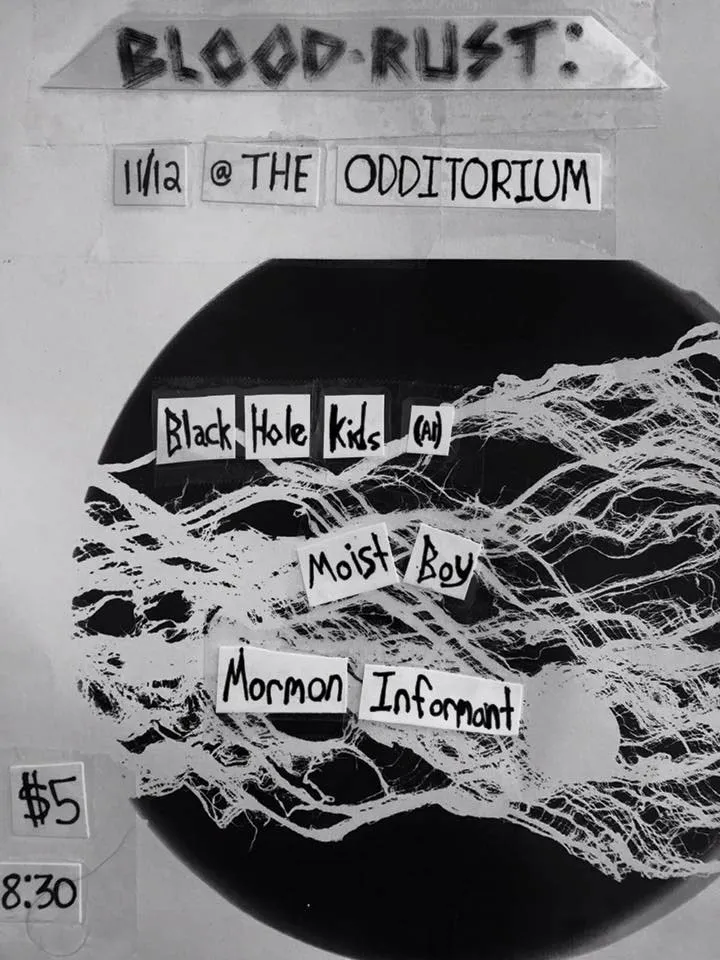 BLOOD·RUST:
11/12 @ THE ODDITORIUM
Black Hole Kids (AI)
Moist Boy
Mormon Informant
$5
8:30